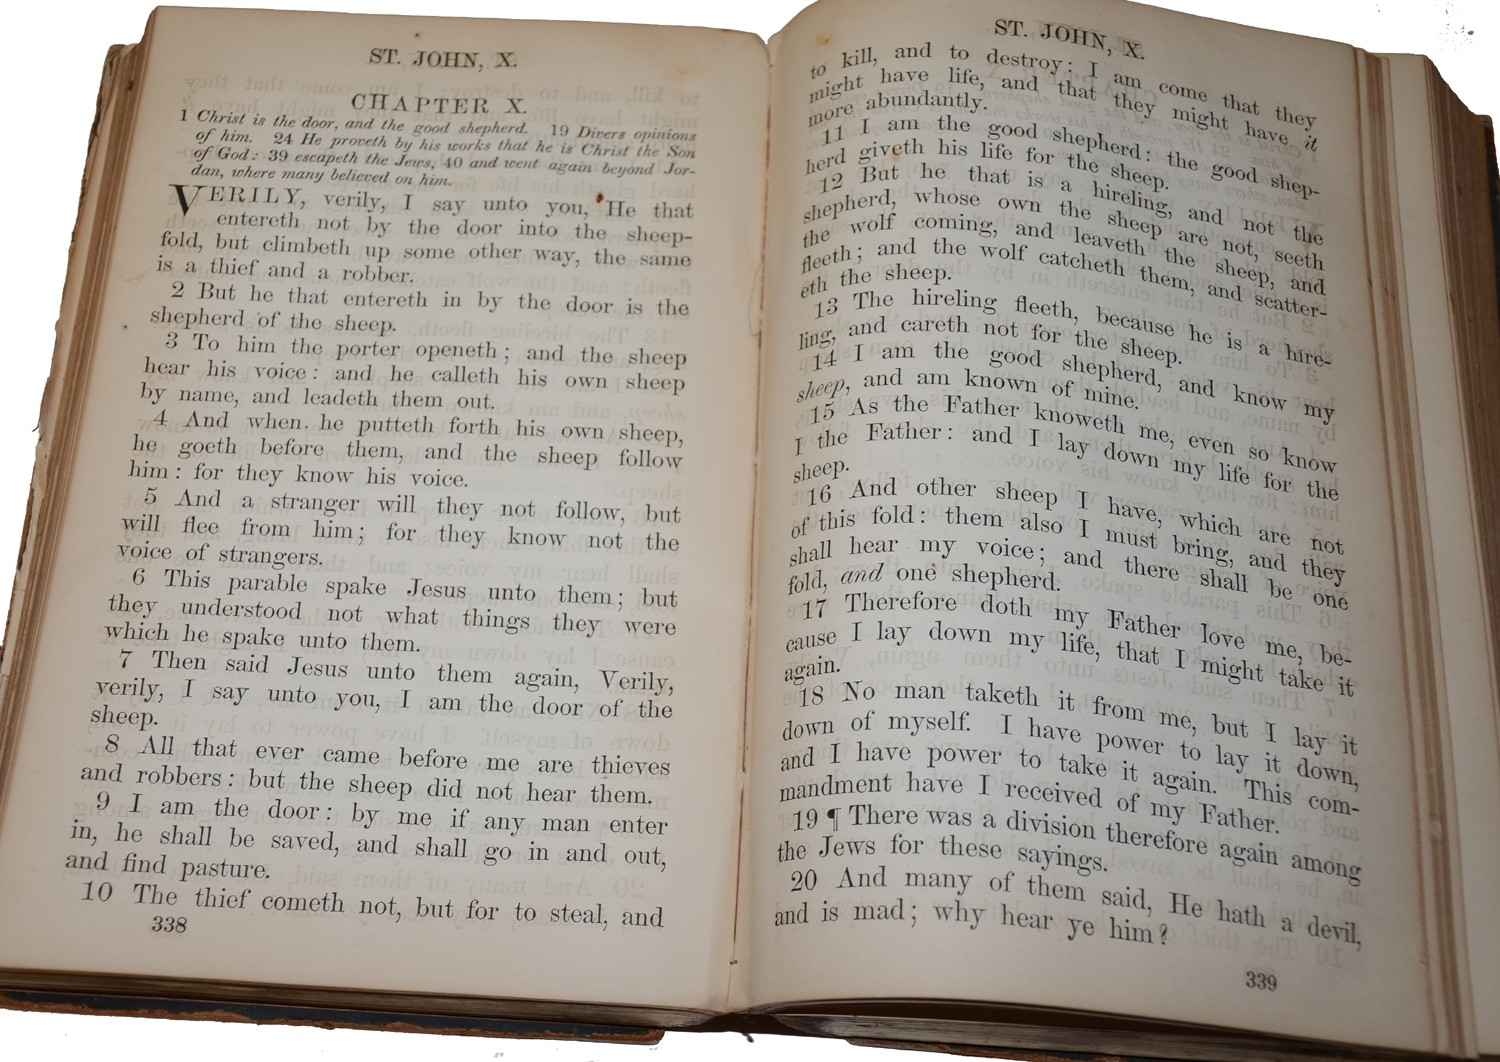 ST. JOHN, X.
CHAPTER X.
1 Christ is the door, and the good shepherd. 19 Divers opinions
of him. 24 He proveth by his works that he is Christ the Son
of God: 39 escapeth the Jews, 40 and went again beyond Jor-
dan, where many believed on him.
VERILY, verily, I say unto you, He that
entereth not by the door into the sheep-
fold, but climbeth up some other way, the same
is a thief and a robber.
2 But he that entereth in by the door is the
shepherd of the sheep.
3 To him the porter openeth; and the sheep
hear his voice: and he calleth his own sheep
by name, and leadeth them out.
4 And when he putteth forth his own sheep,
he goeth before them, and the sheep follow
him: for they know his voice.
5 And a stranger will they not follow, but
will flee from him; for they know not the
voice of strangers.
6 This parable spake Jesus unto them; but
they understood not what things they were
which he spake unto them.
7 Then said Jesus unto them again, Verily,
verily, I say unto you, I am the door of the
sheep.
8 All that ever came before me are thieves
and robbers: but the sheep did not hear them.
9 I am the door: by me if any man enter
in, he shall be saved, and shall go in and out,
and find pasture.
10 The thief cometh not, but for to steal, and
338
ST. JOHN, X.
to kill, and to destroy: I am come that they
might have life, and that they might have it
more abundantly.
11 I am the good shepherd: the good shep-
herd giveth his life for the sheep.
12 But he that is a hireling, and not the
shepherd, whose own the sheep are not, seeth
the wolf coming, and leaveth the sheep, and
fleeth; and the wolf catcheth them, and scatter-
eth the sheep.
13 The hireling fleeth, because he is a hire-
ling, and careth not for the sheep.
14 I am the good shepherd, and know my
sheep, and am known of mine.
15 As the Father knoweth me, even so know
I the Father: and I lay down my life for the
sheep.
16 And other sheep I have, which are not
of this fold: them also I must bring, and they
shall hear my voice; and there shall be one
fold, and one shepherd.
17 Therefore doth my Father love me, be-
cause I lay down my life, that I might take it
again.
18 No man taketh it from me, but I lay it
down of myself. I have power to lay it down,
and I have power to take it again. This com-
mandment have I received of my Father.
19 ¶ There was a division therefore again among
the Jews for these sayings.
20 And many of them said, He hath a devil,
and is mad; why hear ye him?
339